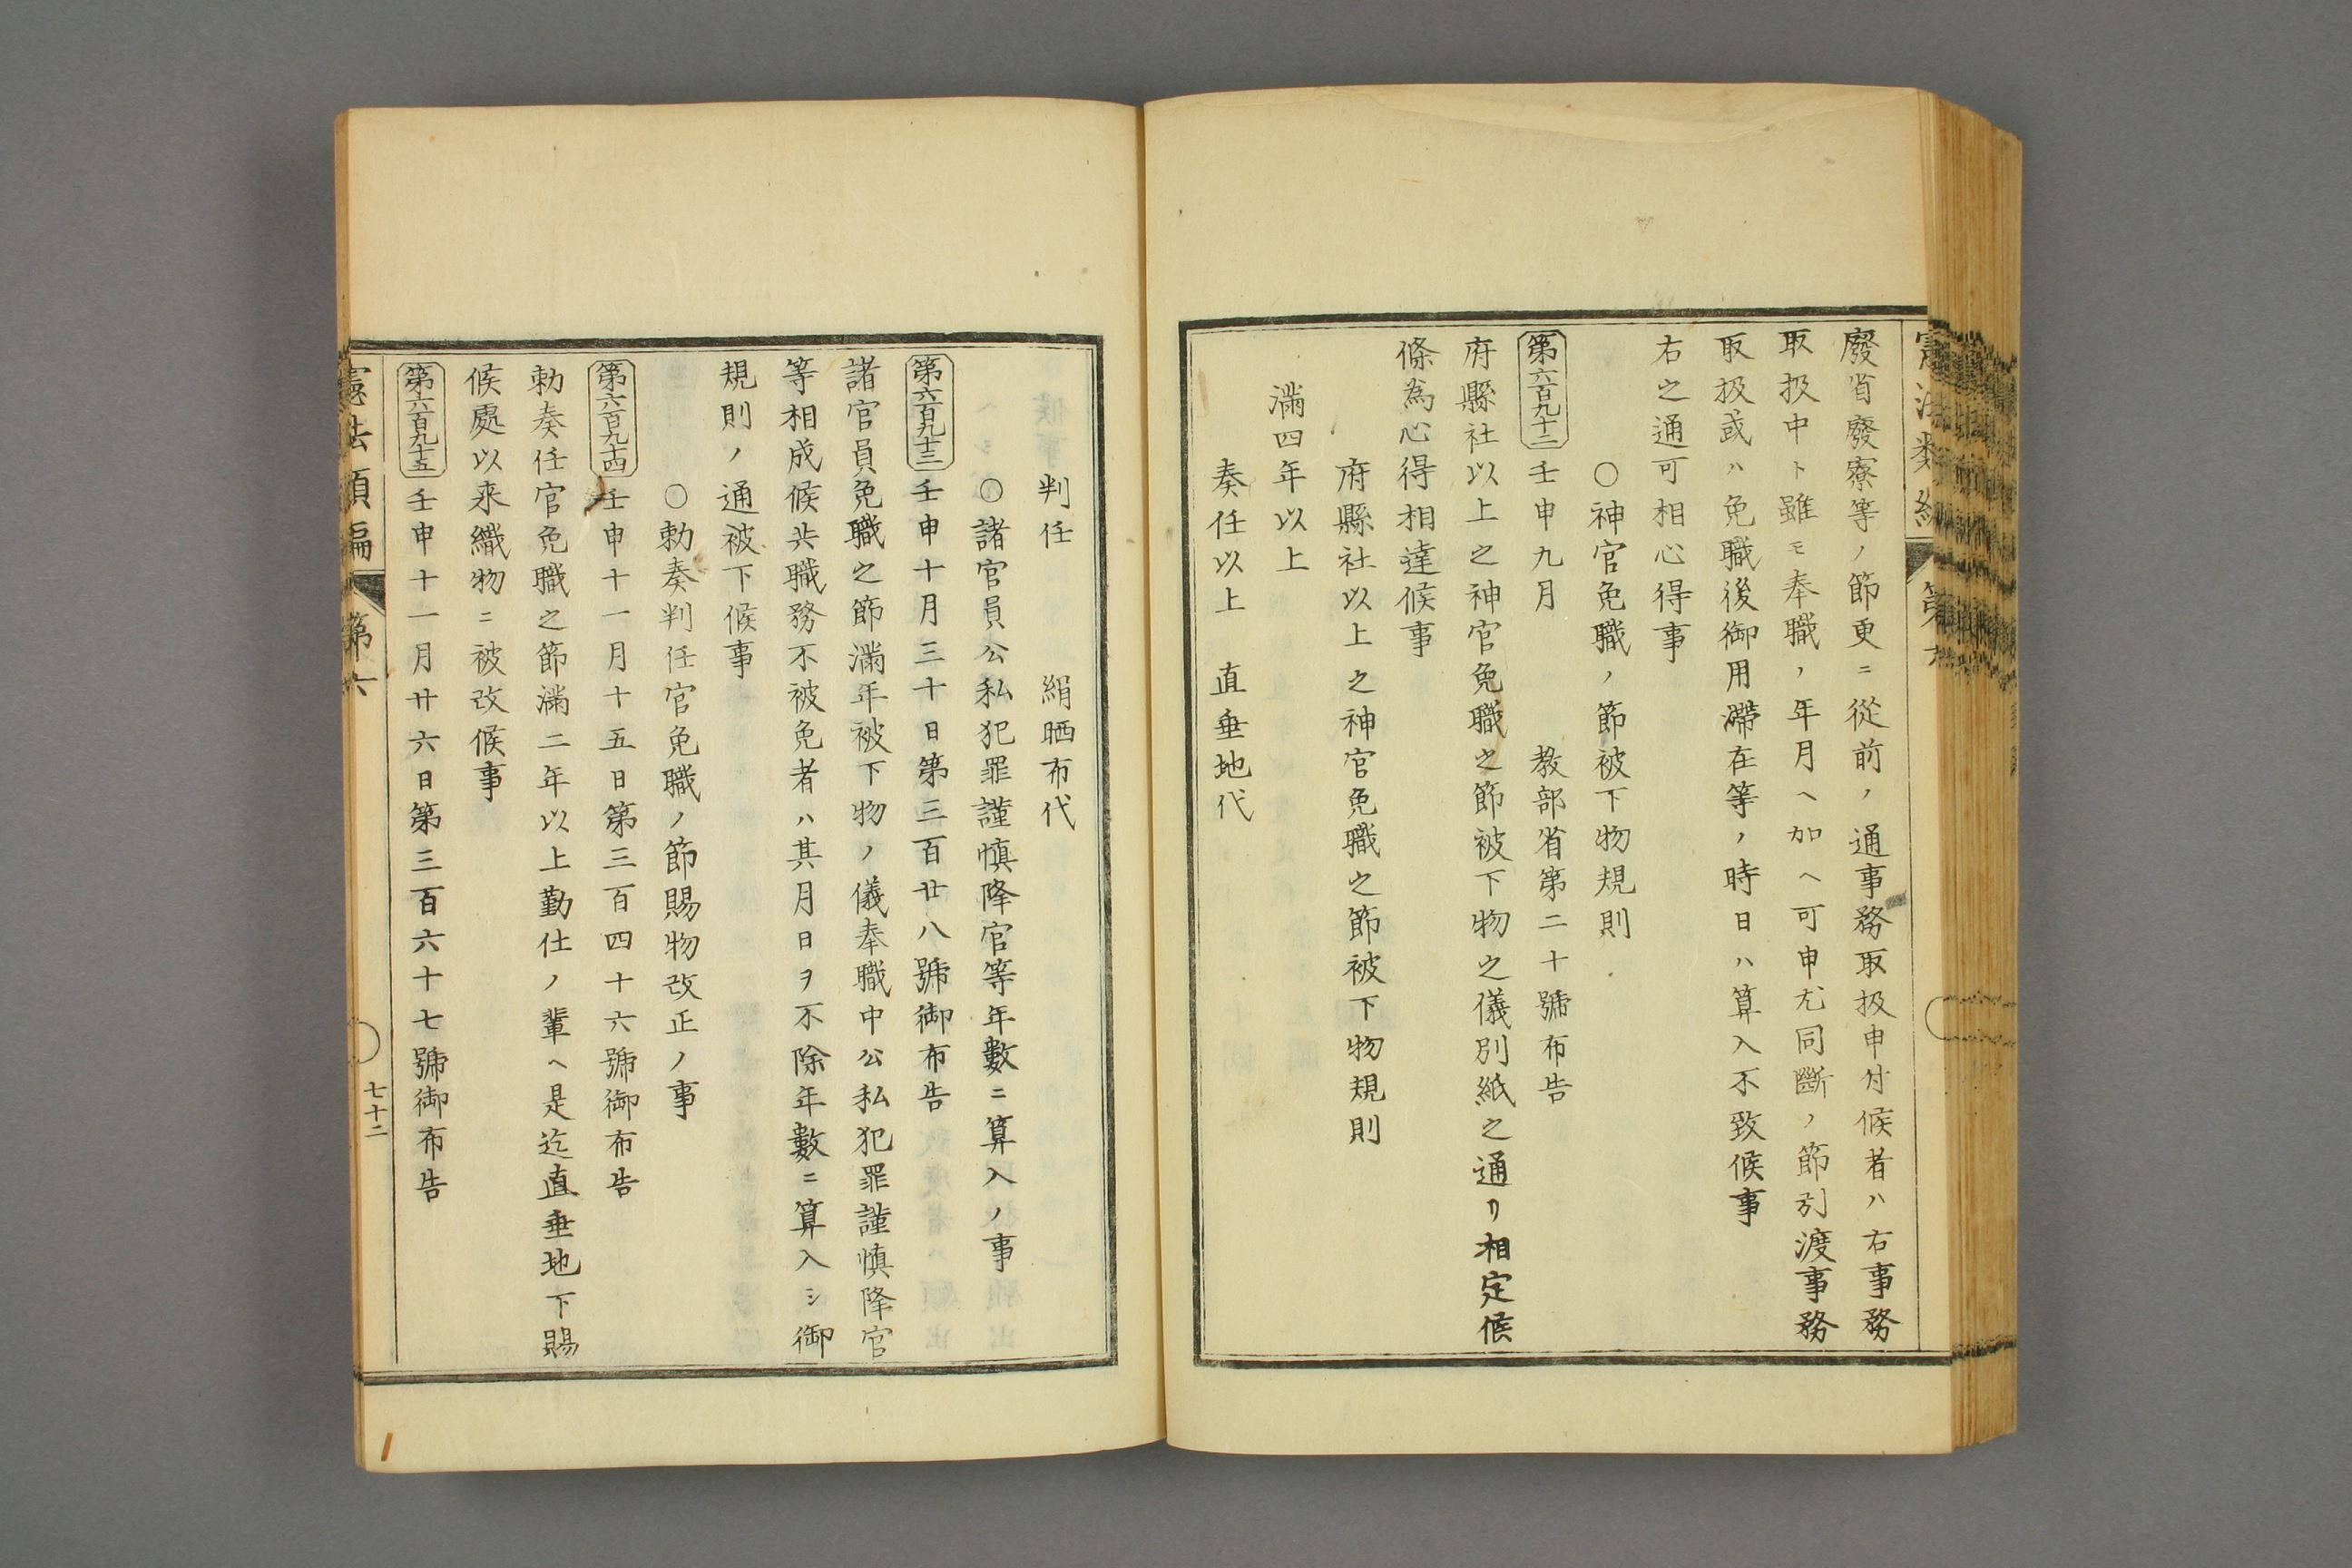 廢省廢寮等ノ節更ニ從前ノ通事務取扱申付候者ハ右事務
取扱中ト雖モ奉職ノ年月ヘ加ヘ可申尤同斷ノ節引渡事務
取扱或ハ免職後御用滯在等ノ時日ハ算入不致候事
右之通可相心得事
○神官免職ノ節被下物規則
第六百九十二 壬申九月 教部省第二十號布告
府縣社以上之神官免職之節被下物之儀別紙之通リ相定候
條為心得相達候事
府縣社以上之神官免職之節被下物規則
滿四年以上
奏任以上 直垂地代
判任 絹晒布代
○諸官員公私犯罪謹慎降官等年數ニ算入ノ事
第六百九十三 壬申十月三十日第三百廿八號御布告
諸官員免職之節滿年被下物ノ儀奉職中公私犯罪謹慎降官
等相成候共職務不被免者ハ其月日ヲ不除年數ニ算入シ御
規則ノ通被下候事
○勅奏判任官免職ノ節賜物改正ノ事
第六百九十四 壬申十一月十五日第三百四十六號御布告
勅奏任官免職之節滿二年以上勤仕ノ輩ヘ是迄直垂地下賜
候處以来織物ニ被改候事
第六百九十五 壬申十一月廿六日第三百六十七號御布告
憲法類編 第六
七十二